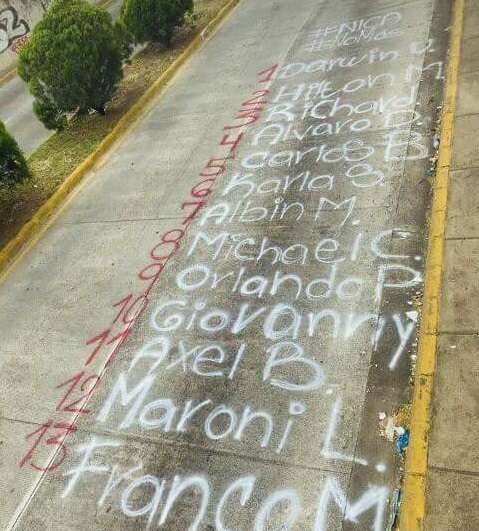 #FNICD
#NoMás
1 Darwin U.
2 Hilton M.
3 Richard
4 Alvaro D.
5 Carlos B.
6 Karla S.
7 Albin M.
8 Michael C.
9 Orlando P
10 Giovanny
11 Axel B.
12 Maroni L.
13 Franco M